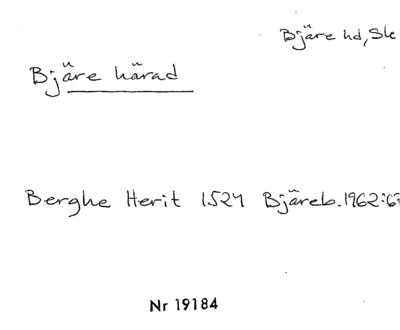 Bjäre hd, Sk
Bjäre härad
Berghe Herit 1524 Bjäreb. 1962:6
Nr 19184